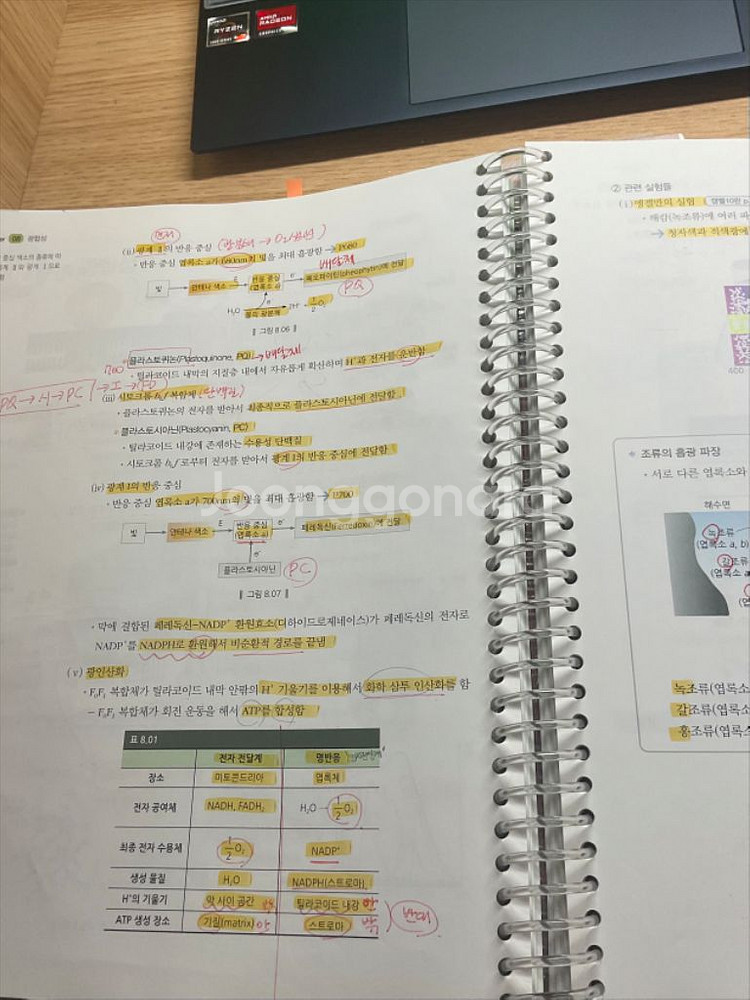 AMD
RYZEN
AMD
RADEON
08 광합성
(ii) 광계 Ⅱ의 반응 중심
· 반응 중심 엽록소 a가 680nm의 빛을 최대 흡광함 → P680
배달책
빛
안테나 색소
E
반응 중심
(엽록소 a)
e⁻
페오파이틴(pheophytin)에 전달
PQ
H₂O
물의 광분해
2H⁺ + ½O₂
‖ 그림 8.06 ‖
700
* 플라스토퀴논(Plastoquinone, PQ) → 배달책
· 틸라코이드 내막의 지질층 내에서 자유롭게 확산하며 H⁺과 전자를 운반함
PQ → 시 → PC
(iii) 시토크롬 b₆f 복합체 (단백질)
· 플라스토퀴논의 전자를 받아서 최종적으로 플라스토시아닌에 전달함
* 플라스토시아닌(Plastocyanin, PC)
· 틸라코이드 내강에 존재하는 수용성 단백질
· 시토크롬 b₆f로부터 전자를 받아서 광계 Ⅰ의 반응 중심에 전달함
(iv) 광계 Ⅰ의 반응 중심
· 반응 중심 엽록소 a가 700nm의 빛을 최대 흡광함 → P700
Joonggonara
빛
안테나 색소
E
반응 중심
(엽록소 a)
e⁻
페레독신(Ferredoxin)에 전달
e⁻
플라스토시아닌
PC
‖ 그림 8.07 ‖
· 막에 결합된 페레독신-NADP⁺ 환원효소(디하이드로제네이스)가 페레독신의 전자로
NADP⁺를 NADPH로 환원해서 비순환적 경로를 끝냄
(v) 광인산화
· F₀F₁ 복합체가 틸라코이드 내막 안팎의 H⁺ 기울기를 이용해서 화학 삼투 인산화를 함
- F₀F₁ 복합체가 회전 운동을 해서 ATP를 합성함
표 8.01
전자 전달계
명반응
장소
미토콘드리아
엽록체
전자 공여체
NADH, FADH₂
H₂O → ½O₂
최종 전자 수용체
½O₂
NADP⁺
생성 물질
H₂O
NADPH(스트로마),
H⁺의 기울기
막 사이 공간
틸라코이드 내강
안
ATP 생성 장소
기질(matrix)
안
스트로마
밖
반대
② 관련 실험들
(i) 엥겔만의 실험
· 해캄(녹조류)에 여러 파
→ 청자색과 적색광에
400
* 조류의 흡광 파장
· 서로 다른 엽록소와
해수면
녹조류
(엽록소 a, b)
갈조류
(엽록소
녹조류(엽록소
갈조류(엽록소
홍조류(엽록소